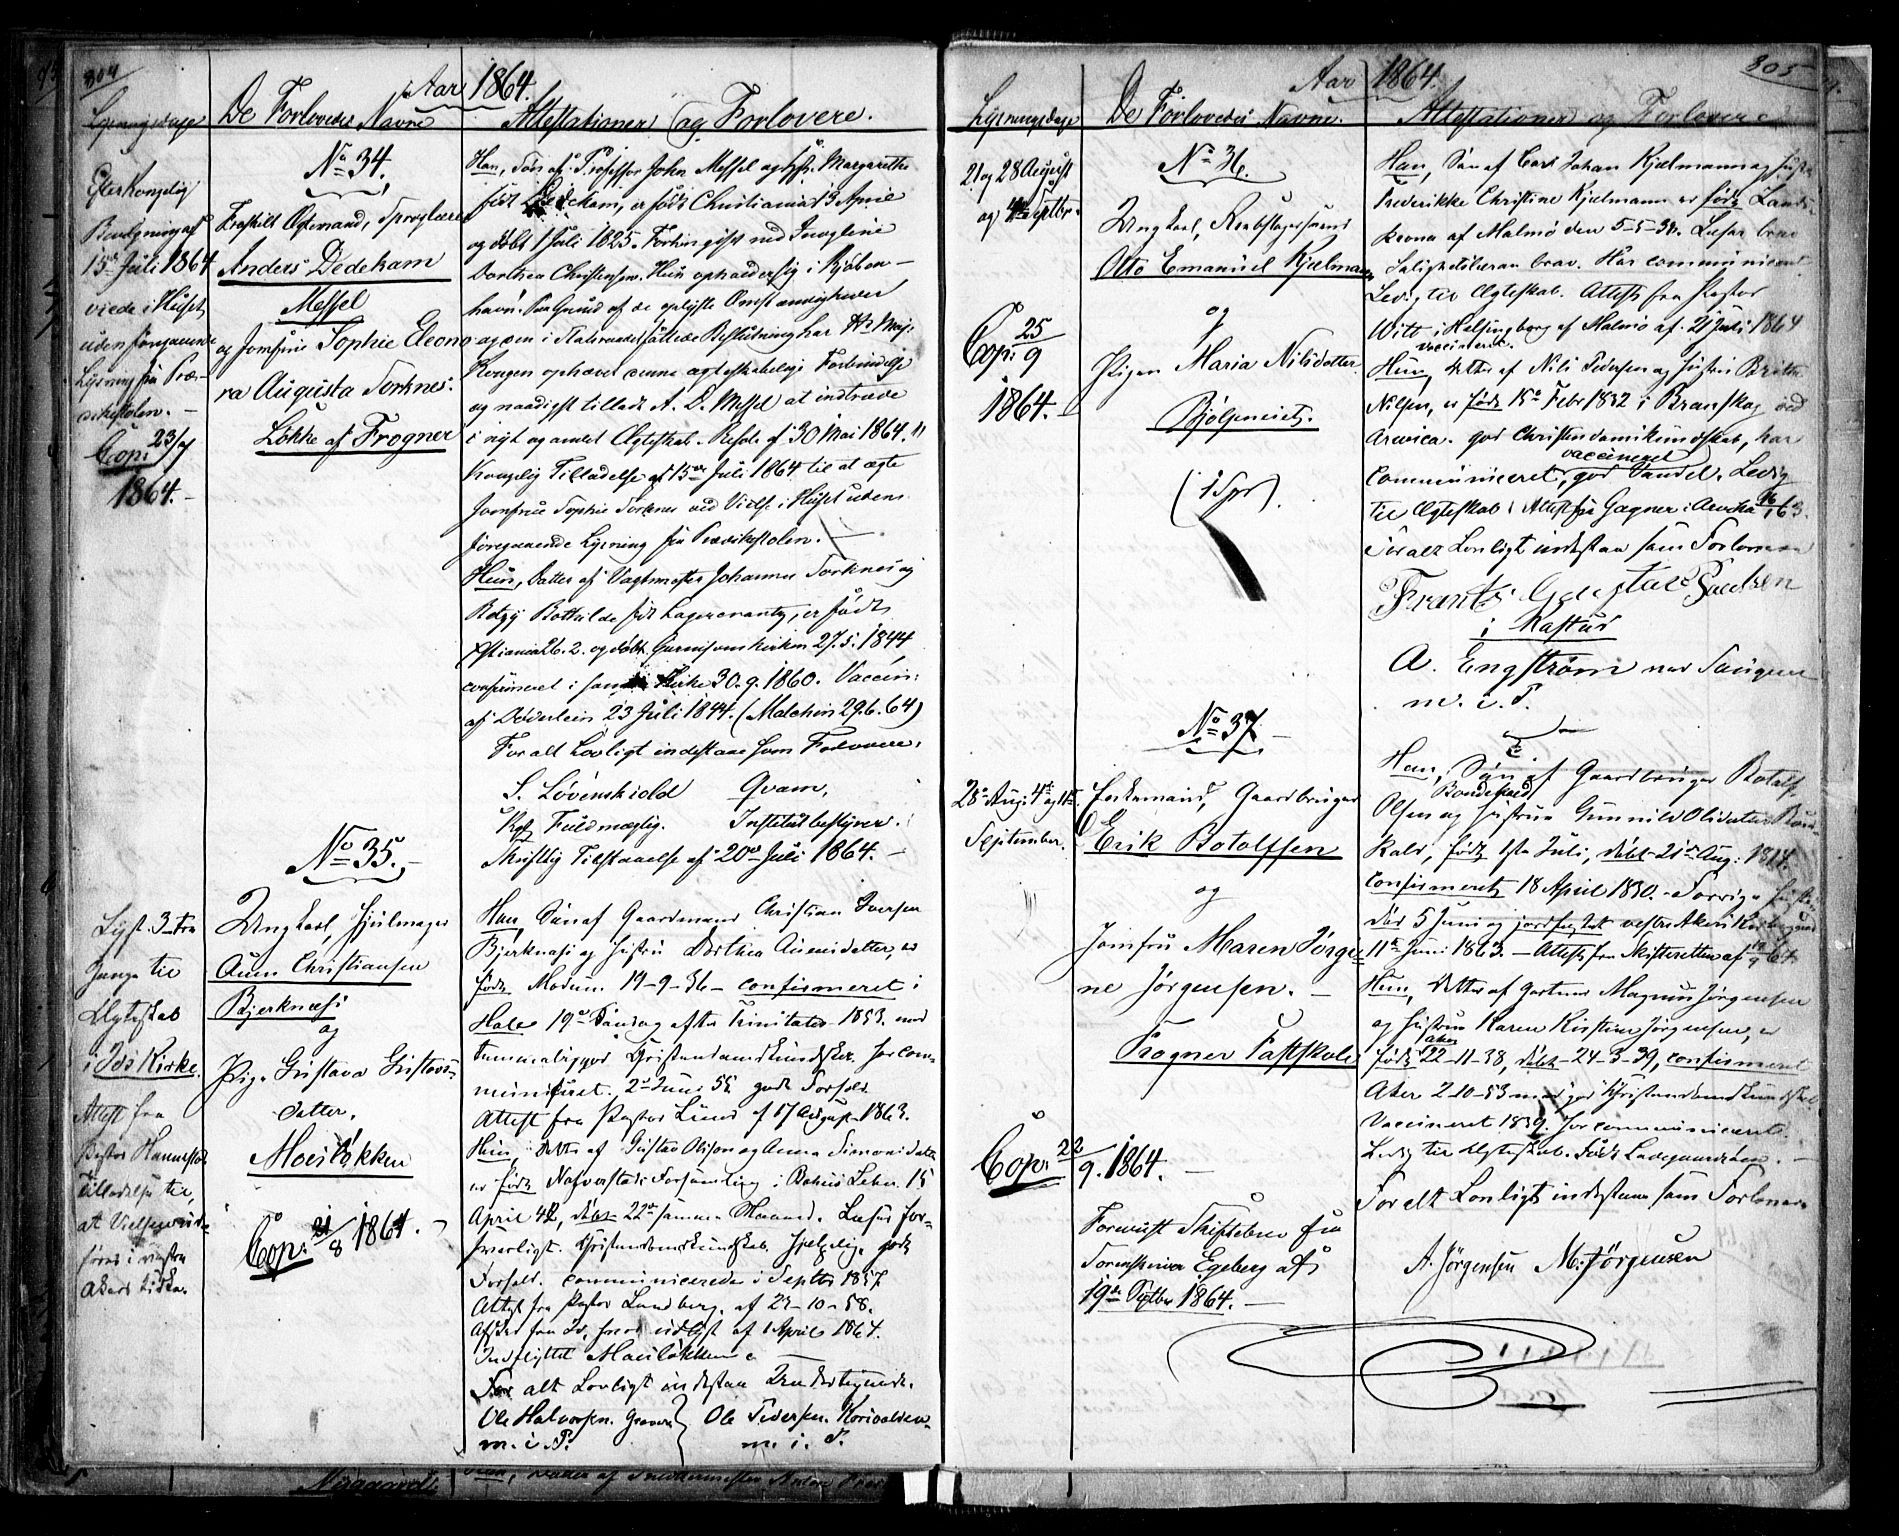 804
Aar 1864.
Lysningsdage
De Forlovedes Navne
Attestationer og Forlovere.
Efter Kongelig
Bevilgning af
15de Juli 1864
viede i Huset
uden foregaaende
Lysning fra Præ-
dikestolen. -
Cop: 23/7
1864. -
No 34.
Fraskilt Ægtemand, Sproglærer
Anders Dedekam
Messel
og Jomfrue Sophie Eleono
ra Augusta Torknes.
Løkke af Frogner
Han, Søn af Professor John Messel og Margarethe
født Dedekam, er født Christiania 13 April
og døbt 1 Juli 1825. Forhin gift med
Dorthea Christensen. Hun opholder sig i Kjøben-
havn. Paa Grund af de oplyste Omstændigheder
og den i Statsraadet fattede Beslutning har Hs Maj.
Kongen ophævet denne ægteskabelige Forbindelse
og naadigst tilladt A. D. Messel at indtræde
i nyt og andet Ægteskab. Resol. af 30 Mai 1864.
Kongelig Tilladelse af 15de Juli 1864 til at ægte
Jomfrue Sophie Torknes ved Vielse i Huset uden
foregaaende Lysning fra Prædikestolen. -
Hun, Datter af Vagtmester Johannes Torknes og
Betzy Bothilde født Lagercrantz, er født
Xstiania 26.2. og døbt Garnisonskirken 27.5.1844,
confirmeret i samme Kirke 30.9.1860. Vaccin:
af Døderlein 23 Juli 1844. (Malchin 29.6.64)
For alt Lovligt indestaae som Forlovere,
S. Løvenskiold Qvam,
Kgl Fuldmægtig. Institutbestyrer.
Skriftlig Tilstaaelse af 20de Juli 1864. -
Lyst 3 Fra
Gange til
Ægteskab
i Ids Kirke.
Attest fra
Pastor
Tilladelse til,
at Vielsen ud-
føres i vestre
Akers Kirke.
No 35.
Ungkarl, Hjulmager
Aun Christiansen
Bjerknæs
og
Pige Gustava Gustavs-
datter,
Moesløkken
Cop: 21/8 1864.
Han, Søn af Gaardmand Christian Iversen
Bjerknæs og Hustru Dorthea Arnesdatter, er
født Modum 19-9-36 - confirmeret i
Hole 19de Søndag efter Trinitatis 1853. med
Christendomskundskab. har com-
municeret. 2 Juni 55 godt Forhold
Attest fra Pastor Lund af 17 August 1863.
Hun, Datter af Gustav Olsson og Anna Simonsdatter
er født Nafverstads Forsamling i Bohus Lehn 15
April 42, døbt 22de samme Maaned. Læser for-
svarligt. Christendomskundskab. godt
Forhold. communicerede i Septbr 1857
Attest fra Pastor Lundberg. af 23-10-58.
fra Id, hvor udlyst af 1 April 1864.
Indflyttet Moesløkken
For alt Lovligt indestaa Undertegnede.
Ole Halvorsen. Ole Pedersen.
m. i. P. m. i. P.
805
Aar 1864.
Lysningsdage
De Forlovedes Navne.
Attestationer og Forlovere
21 og 28 August
og 4de Septbr.
Cop: 25/9
1864.
No 36.
Ungkarl, Rebslagersvend
Otto Emanuel Kjælmann
og
Pigen Maria Nilsdatter
Bjølsenset.
(i Spr).
Han, Søn af Carl Johan Kjælmann og Hustru
Frederikke Christine Kjælmann er født Lands-
krona af Malmö den 5-5-38. Läsar bra
Salighetslæran bra. Har communicerat.
Ledig til Ægteskab. Attest fra Pastor
Witt i Helsingborg af Malmö af 21 Juli 1864
vaccineret.
Hun, Datter af Nils Pedersen og Hustru Britta
Nilsen, er født 15de Febr 1832 i Branskog ved
Arvica. god Christendomskundskab, har
vaccineret
communiceret, god Vandel. Ledig
til Ægteskab. Attest fra Gagner i Arvica 16/1 63.
For alt Lovligt indestaa som Forlovere
Frants Gustav Poulsen
i Kastus
A. Engstrøm
m. i. P.
28de Aug: 4de og 11te
September.
No 37.
Enkemand, Gaardbruger
Erik Botolfsen
og
Jomfru Maren Jørgi-
ne Jørgensen. -
Frogner Fattskole
Cop: 22/9. 1864. -
Forevist Skiftebrev fra
Sorenskriver Egeberg af
19de Septbr 1864. -
Han, Søn af Gaardbruger Botolf
Olsen og Hustrue Gunnild Olsdatter
født 1ste Juli, døbt 21de Aug: 1814.
confirmeret 18 April 1830. Forrige Hustru
død 5 Juni og jordfæstet vestre Akers Kirkegaard
11te Juni 1863. - Attest fra Skifteretten af 19/9 64
Hun, Datter af Gartner Magnus Jørgensen
og Hustrue Karen Kirstine Jørgensen, er
Aker
født 22-11-38, døbt 24-3-39, confirmeret
Aker 2-10-53 med god Christendomskundskab
Vaccineret 1839. har communiceret.
Ledig til Ægteskab. Født Ladegaardsøen. -
For alt Lovligt indestaaer som Forlovere
A. Jørgensen M. Jørgensen